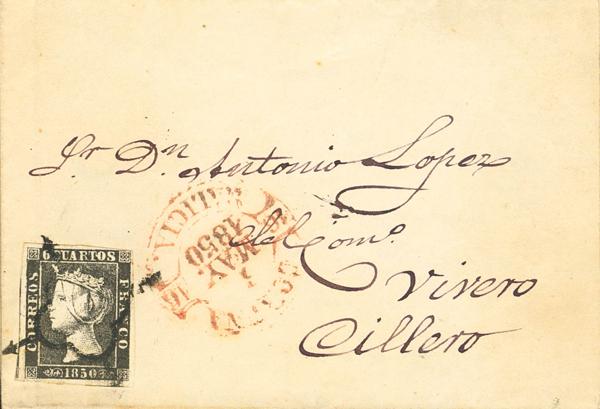 Sr Dn Antonio Lopez
del Como.
Vivero
Cillero
GALICIA.
1850
MAY.
1
6 CUARTOS
CORREOS
FRANCO
1850